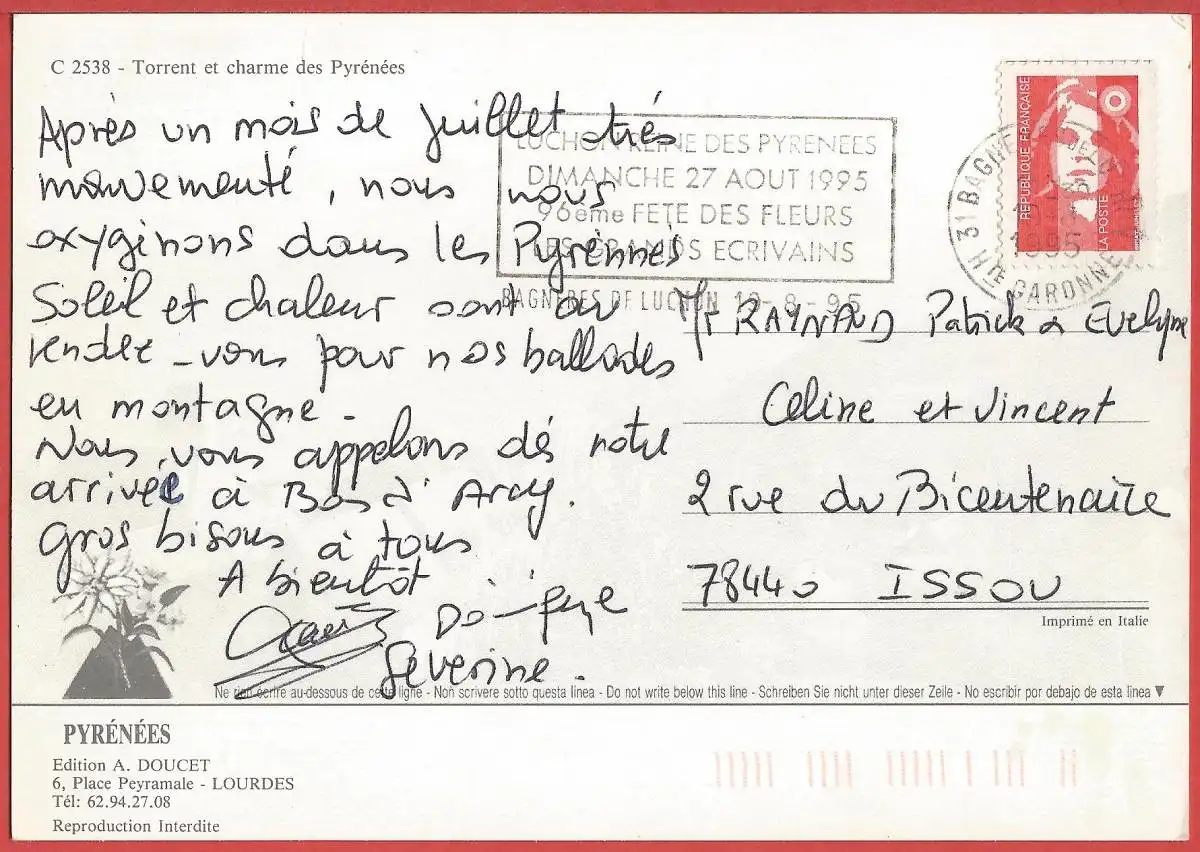 C 2538 - Torrent et charme des Pyrénées
Après un mois de juillet trés
mouvementé, nous nous
oxyginons dans les Pyrénnés
Soleil et chaleur sont au
rendez-vous pour nos ballades
en montagne.
Nous vous appelons dés notre
arrivée à Bois d'Arcy.
Gros bisous à tous
A bientôt
Séverine.
LUCHON REINE DES PYRENEES
DIMANCHE 27 AOUT 1995
96eme FETE DES FLEURS
LES GRANDS ECRIVAINS
BAGNERES DE LUCHON 12-8-95
31 BAGNERES DE
1995
Hte GARONNE
REPUBLIQUE FRANÇAISE
LA POSTE
Mr RAYNAUD Patrick & Evelyne
Celine et Vincent
2 rue du Bicentenaire
78440 ISSOU
Imprimé en Italie
Ne rien écrire au-dessous de cette ligne - Non scrivere sotto questa linea - Do not write below this line - Schreiben Sie nicht unter dieser Zeile - No escribir por debajo de esta linea ▼
PYRÉNÉES
Edition A. DOUCET
6, Place Peyramale - LOURDES
Tél: 62.94.27.08
Reproduction Interdite